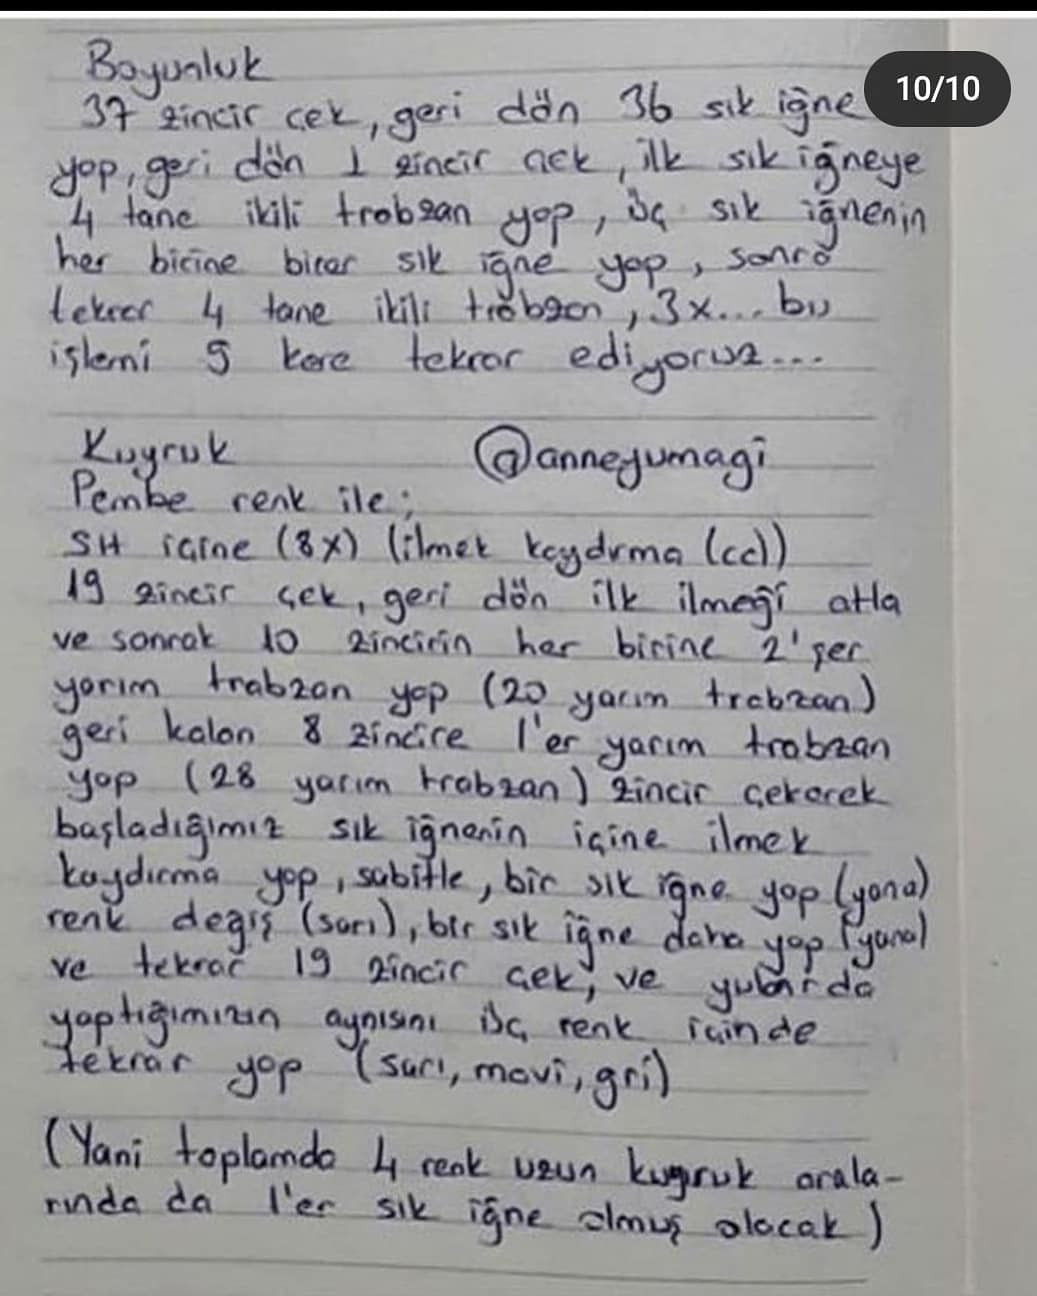 Boyunluk
10/10
37 zincir çek, geri dön 36 sık iğne
yap, geri dön 1 zincir çek, ilk sık iğneye
4 tane ikili trabzan yap, üç sık iğnenin
her birine birer sık iğne yap, sonra
tekrar 4 tane ikili trabzan, 3x... bu
işlemi 9 kere tekrar ediyoruz...
Kuyruk @anneyumagi
Pembe renk ile;
SH içine (8x) (ilmek kaydırma (cc))
19 zincir çek, geri dön ilk ilmeği atla
ve sonrak 10 zincirin her birine 2'şer
yarım trabzan yap (20 yarım trabzan)
geri kalan 8 zincire 1'er yarım trabzan
yap (28 yarım trabzan) zincir çekerek
başladığımız sık iğnenin içine ilmek
kaydırma yap, sabitle, bir sık iğne yap (yana)
renk değiş (sarı), bir sık iğne daha yap (yana)
ve tekrar 19 zincir çek, ve yukarıda
yaptığımızın aynısını üç renk içinde
tekrar yap (sarı, mavi, gri)
(Yani toplamda 4 renk uzun kuyruk arala-
rında da 1'er sık iğne olmuş olacak)